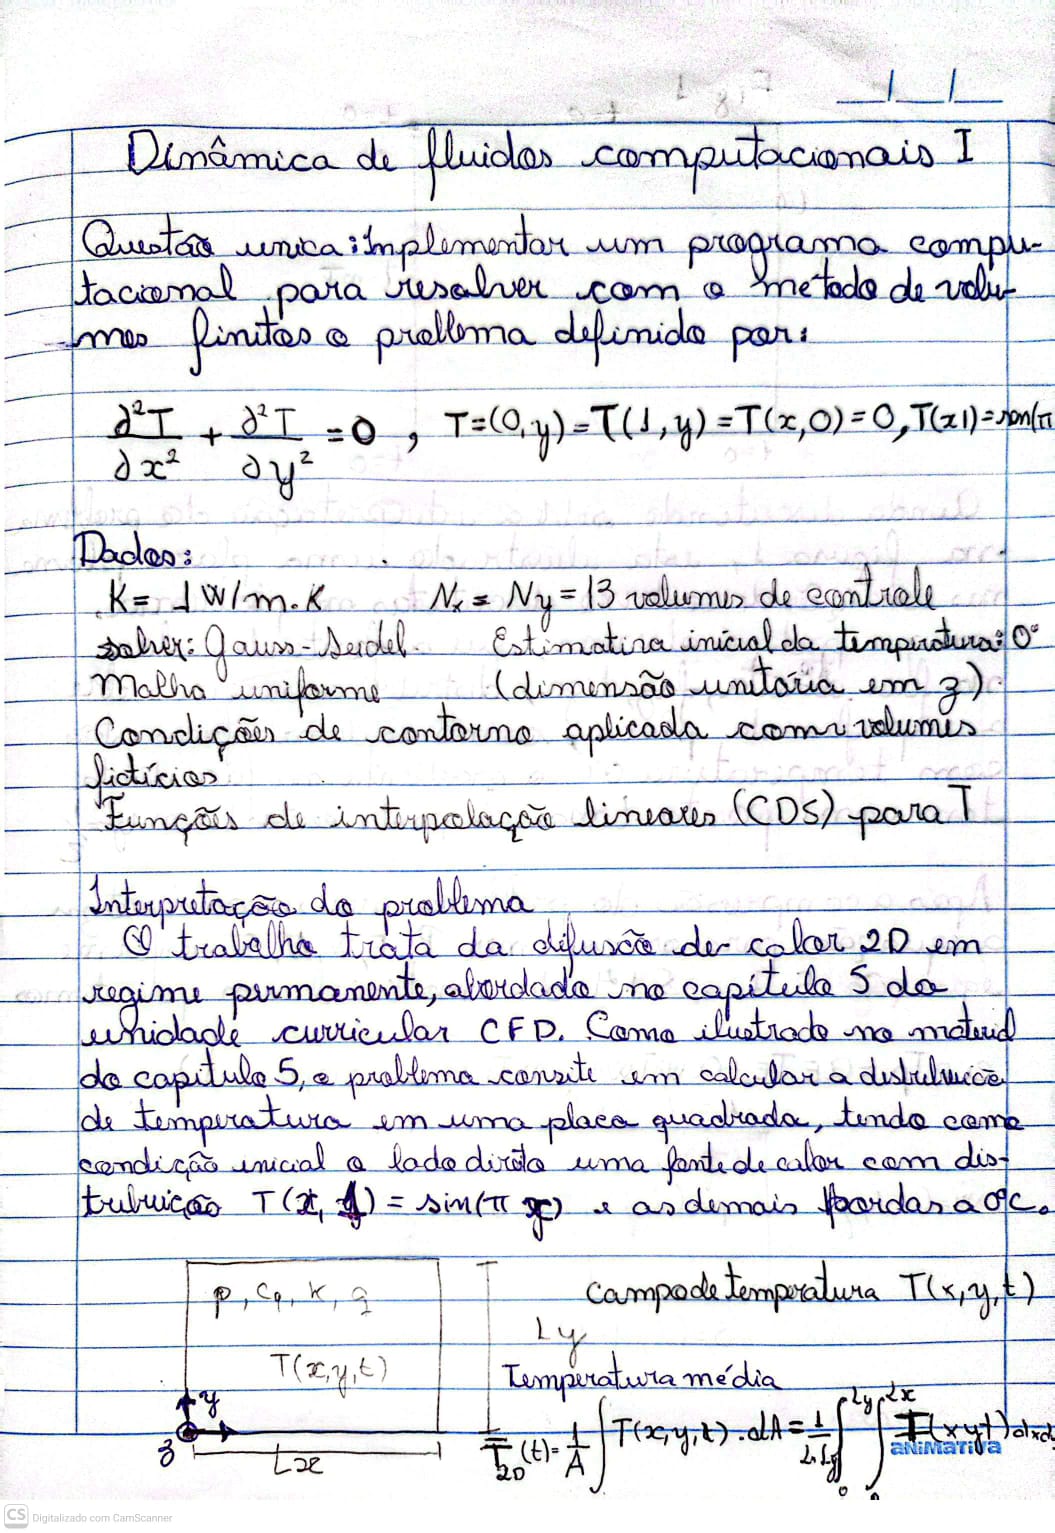 __/__/__
Dinâmica de fluidos computacionais I
Questão unica: Implementar um programa compu-
tacional para resolver com o metodo de volu-
mes finitos o problema definido por:
∂²T/∂x² + ∂²T/∂y² = 0 , T=(0,y)=T(1,y)=T(x,0)=0, T(x1)=sen(π
Dados:
K= 1 W/m.K Nx = Ny = 13 volumes de controle
solver: Gauss-Seidel. Estimativa inicial da temperatura: 0°
Malha uniforme (dimensão unitária em z)
Condições de contorno aplicada com volumes
fictícios
Funções de interpolação lineares (CDS) para T
Interpretação do problema
O trabalho trata da difusão de calor 2D em
regime permanente, abordado no capítulo 5 da
unidade curricular CFD. Como ilustrado no material
do capitulo 5, o problema consite em calcular a distribuição
de temperatura em uma placa quadrada, tendo como
condição inicial o lado direito uma fonte de calor com dis-
tribuição T(x, 1) = sin(π x) e as demais bordas a 0°C.
ρ, Cp, K, q
T(x,y,t)
y
z
Lx
Ly
campo de temperatura T(x,y,t)
Temperatura média
T̅2D (t) = 1/A ∫ T(x,y,t).dA = 1/Lx Ly ∫0^Ly ∫0^Lx T(x y t) dxdy
ANiMATiVA
CS Digitalizado com CamScanner